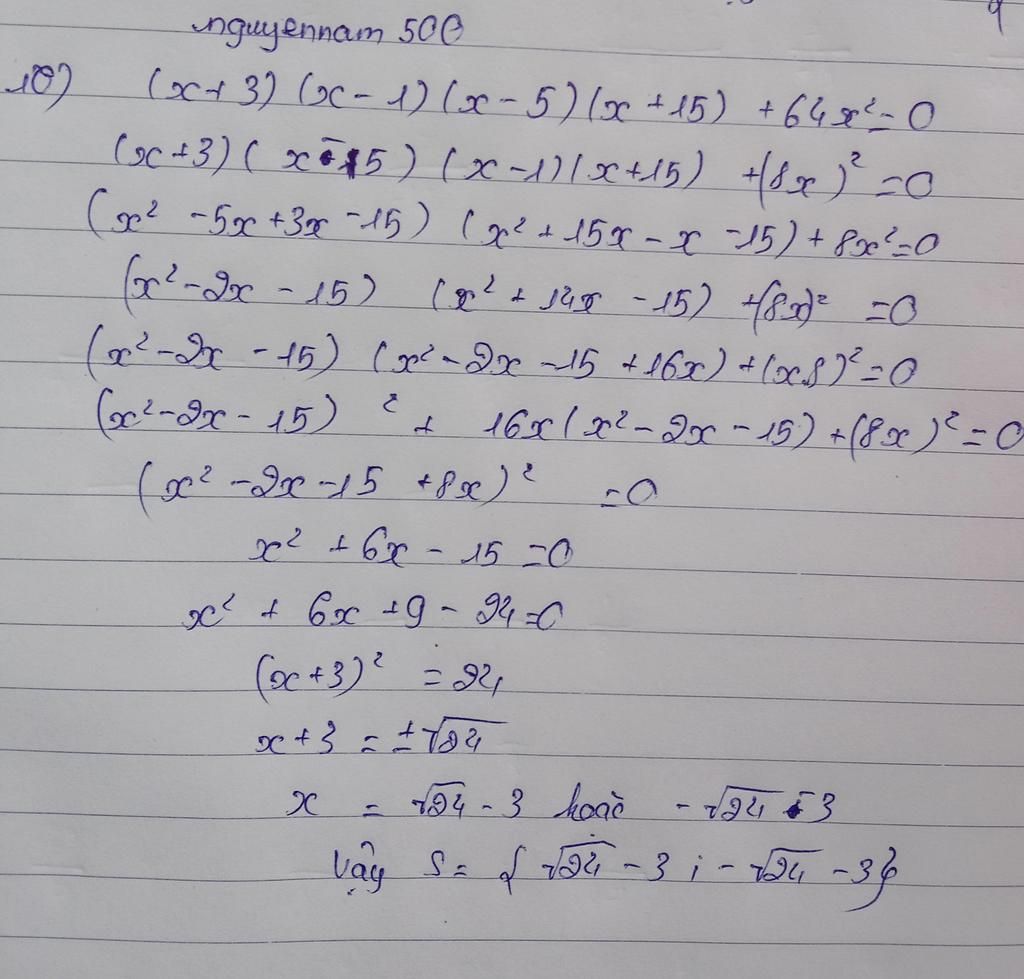 nguyennam 500
10) (x+3)(x-1)(x-5)(x+15) +64x²=0
(x+3)(x-5)(x-1)(x+15) +(8x)²=0
(x² -5x+3x-15) (x²+15x-x-15)+8x²=0
(x²-2x-15) (x²+14x-15) +(8x)² =0
(x²-2x-15) (x²-2x-15+16x)+(x8)²=0
(x²-2x-15)² + 16x(x²-2x-15)+(8x)²=0
(x²-2x-15+8x)² =0
x²+6x-15=0
x²+6x+9-24=0
(x+3)² =24
x+3=±√24
x = √24-3 hoặc -√24-3
Vậy S={√24-3;-√24-3}